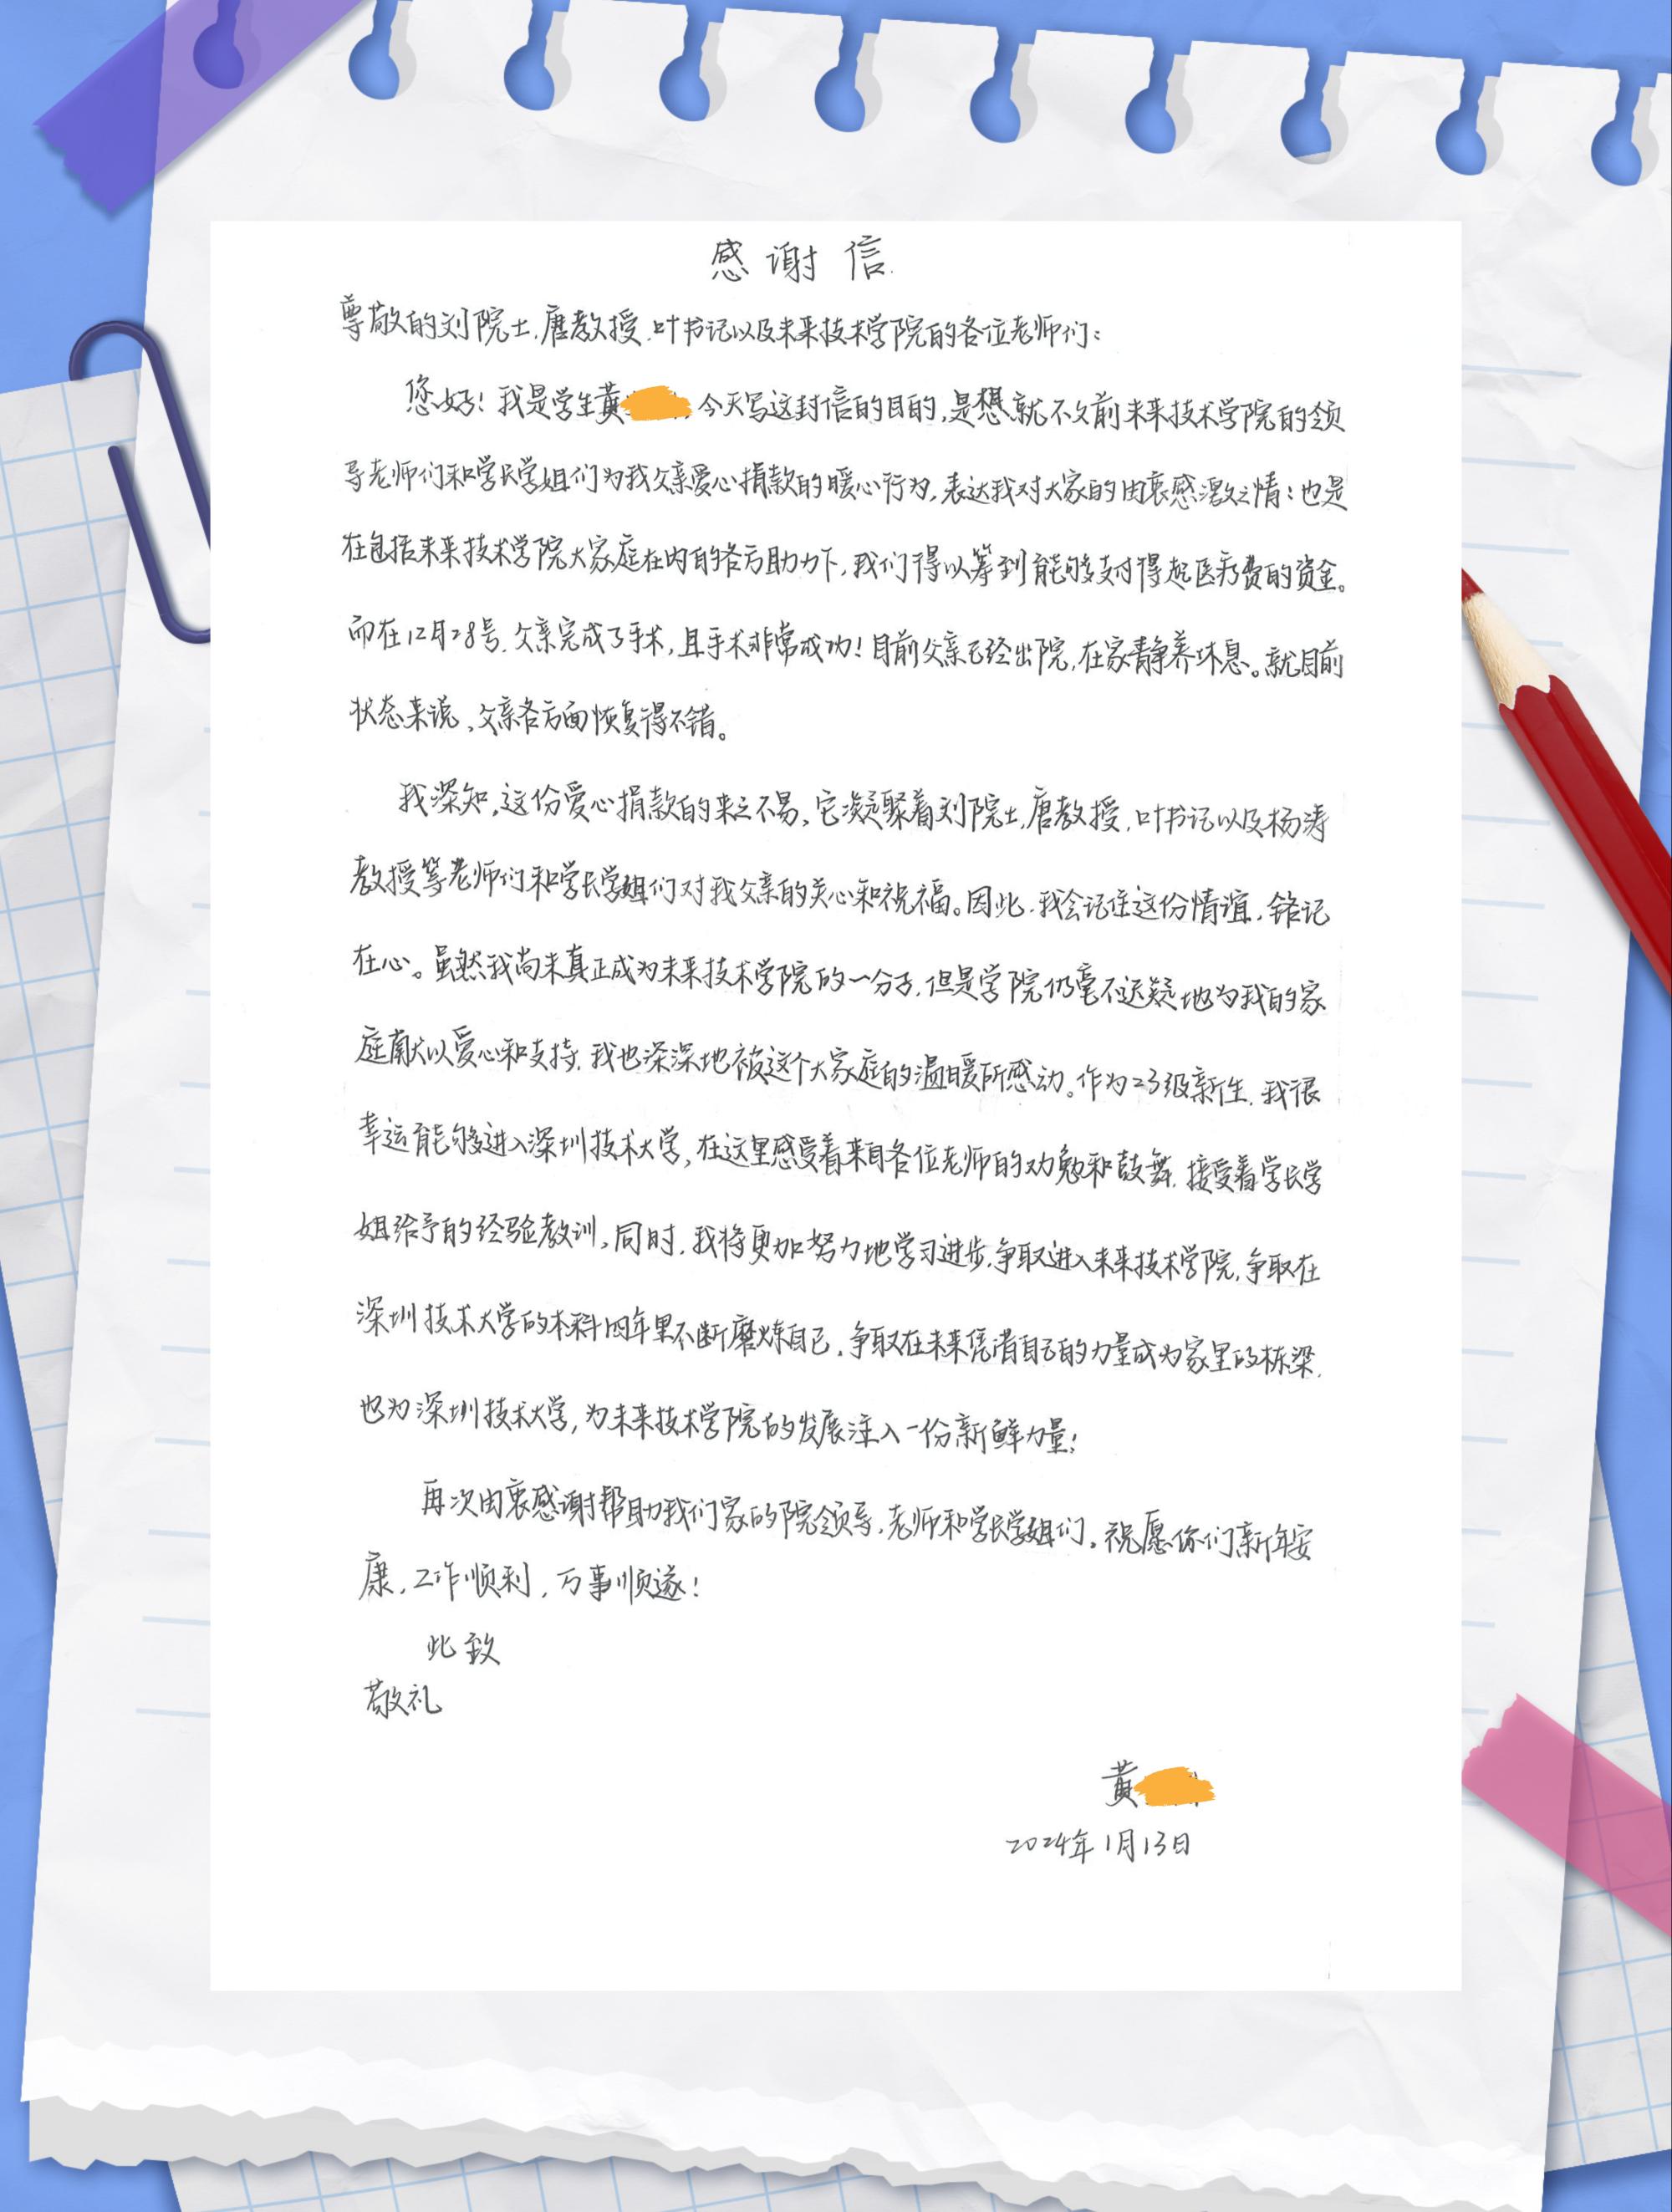 感谢信
尊敬的刘院士,唐教授,叶书记以及未来技术学院的各位老师们:
您好!我是学生黄 今天写这封信的目的,是想就不久前未来技术学院的领
导老师们和学长学姐们为我父亲爱心捐款的暖心行为,表达我对大家的由衷感激之情:也是
在包括未来技术学院大家庭在内的各方助力下,我们得以筹到能够支付得起医疗费的资金。
而在12月28号,父亲完成了手术,且手术非常成功!目前父亲已经出院,在家静养休息。就目前
状态来说,父亲各方面恢复得不错。
我深知,这份爱心捐款的来之不易,它凝聚着刘院士,唐教授,叶书记以及杨涛
教授等老师们和学长学姐们对我父亲的关心和祝福。因此,我会记住这份情谊,铭记
在心。虽然我尚未真正成为未来技术学院的一分子,但是学院仍毫不迟疑地为我的家
庭献以爱心和支持,我也深深地被这个大家庭的温暖所感动。作为23级新生,我很
幸运能够进入深圳技术大学,在这里感受着来自各位老师的劝勉和鼓舞,接受着学长学
姐给予的经验教训,同时,我将更加努力地学习进步,争取进入未来技术学院,争取在
深圳技术大学的本科四年里不断磨炼自己,争取在未来凭借自己的力量成为家里的栋梁,
也为深圳技术大学,为未来技术学院的发展注入一份新鲜力量!
再次由衷感谢帮助我们家的院领导,老师和学长学姐们,祝愿你们新年安
康,工作顺利,万事顺遂!
此致
敬礼
黄
2024年1月13日